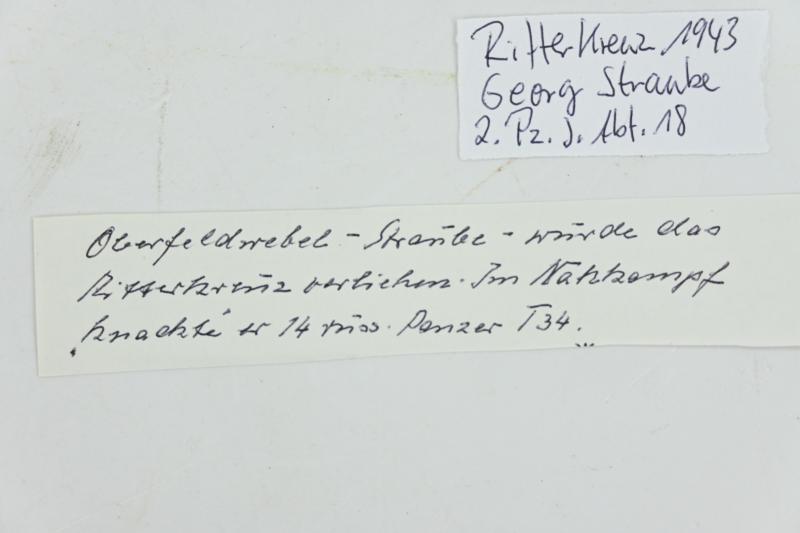 Ritterkreuz 1943
Georg Straube
2. Pz. J. Abt. 18
Oberfeldwebel - Straube - wurde das
Ritterkreuz verliehen. Im Nahkampf
„knackte“ er 14 russ. Panzer T34.